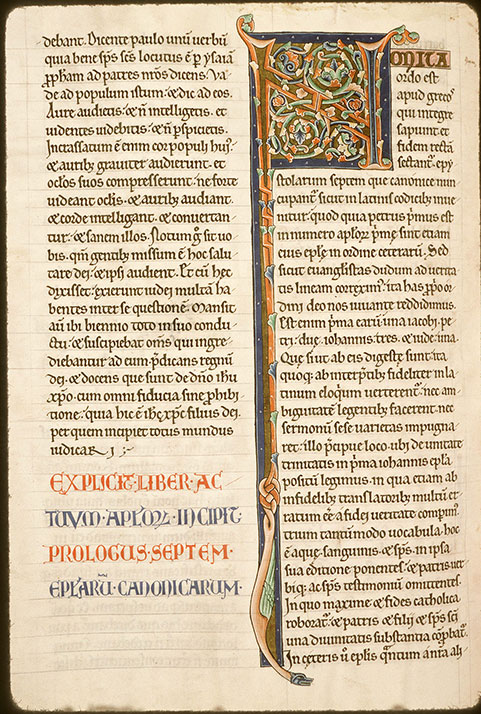 debant. Dicente paulo unu͂ verbu͂
quia bene sp͂s sc͂s locutus ē p ysaiā
ꝓpham ad patres nr͂os dicens. Va-
de ad populum istum: ⁊ dic ad eos.
Aure audietis: ⁊ n͂ intelligetis. et
videntes videbitis: ⁊ n͂ pspicietis.
Incrassatum ē enim cor populi hui᾿:
⁊ aurib; graviter audierunt: et
oc͂los suos compresserunt. ne forte
videant oc͂lis. ⁊ aurib; audiant.
⁊ corde intelligant. ⁊ convertan-
tur: ⁊ sanem illos. Notum g͂ sit vo-
bis. qm͂ gentib; missum ē hoc salu-
tare dei. ⁊ ip͂si audient. Et cū hec
dixisset: exierunt iudei multā ha-
bentes inter se questionē. Mansit
au͂ ibi biennio toto in suo condu-
ctu: ⁊ suscipiebat om͂s qui ingre-
diebantur ad eum. p͂dicans regnū
dei. ⁊ docens que sunt de dn͂o ihu͂
xp͂o. cum omni fiducia sine ꝓhibi-
tione: quia hic ē ihc͂ xpc͂ filius dei.
per quem incipiet totus mundus
iudicari;
EXPLICIT·LIBER·AC
TUUM·APL͂OR᷑·INCIPIT·
PROLOGUS·SEPTEM·
EPL͂ARŪ·CANONICARUM·
NON ITA
ordo est
apud grecos
qui integre
sapiunt. et
fidem rectā
sectant᷑. epy
stolarum septem que canonice nun-
cupant᷑. sicut in latinis codicib; inve-
nitur. quod quia petrus p͂mus est
in numero apl͂or᷑. p͂me sint etiam
eius epl͂e in ordine ceterarū. Sed
sicut evangl͂istas dudum ad verita-
tis lineam correximus: ita has ꝓp͂o or-
dini deo nos iuvante reddidimus.
Est enim p͂ma earū una iacobi. pe-
tri: due. iohannis: tres. ⁊ iude: una.
Que si ut ab eis digeste sunt: ita
quoq; ab int͂p͂tib; fideliter in la-
tinum eloq͂um verterent᷑: nec am-
biguitatē legentib; facerent. nec
sermonū sese varietas impugna-
ret: illo p͂cipue loco. ubi de unitate
trinitatis in p͂ma iohannis epl͂a
positū legimus. in qua etiam ab
infidelib; translatorib; multū er-
ratum eē a fidei veritate compim᷑
trium tantūmodo vocabula. hoc
ē aque. sanguinis. ⁊ sp͂s. in ipsa
sua editione ponentes. ⁊ patris ver-
biq; ac sp͂s testimoniū omittentes.
In quo maxime ⁊ fides catholica
roborat᷑. ⁊ patris ⁊ filij ⁊ sp͂s sc͂i
una divinitatis substantia cōprobat᷑.
In ceteris v͂ epl͂is q͂ntum a nr͂a ali